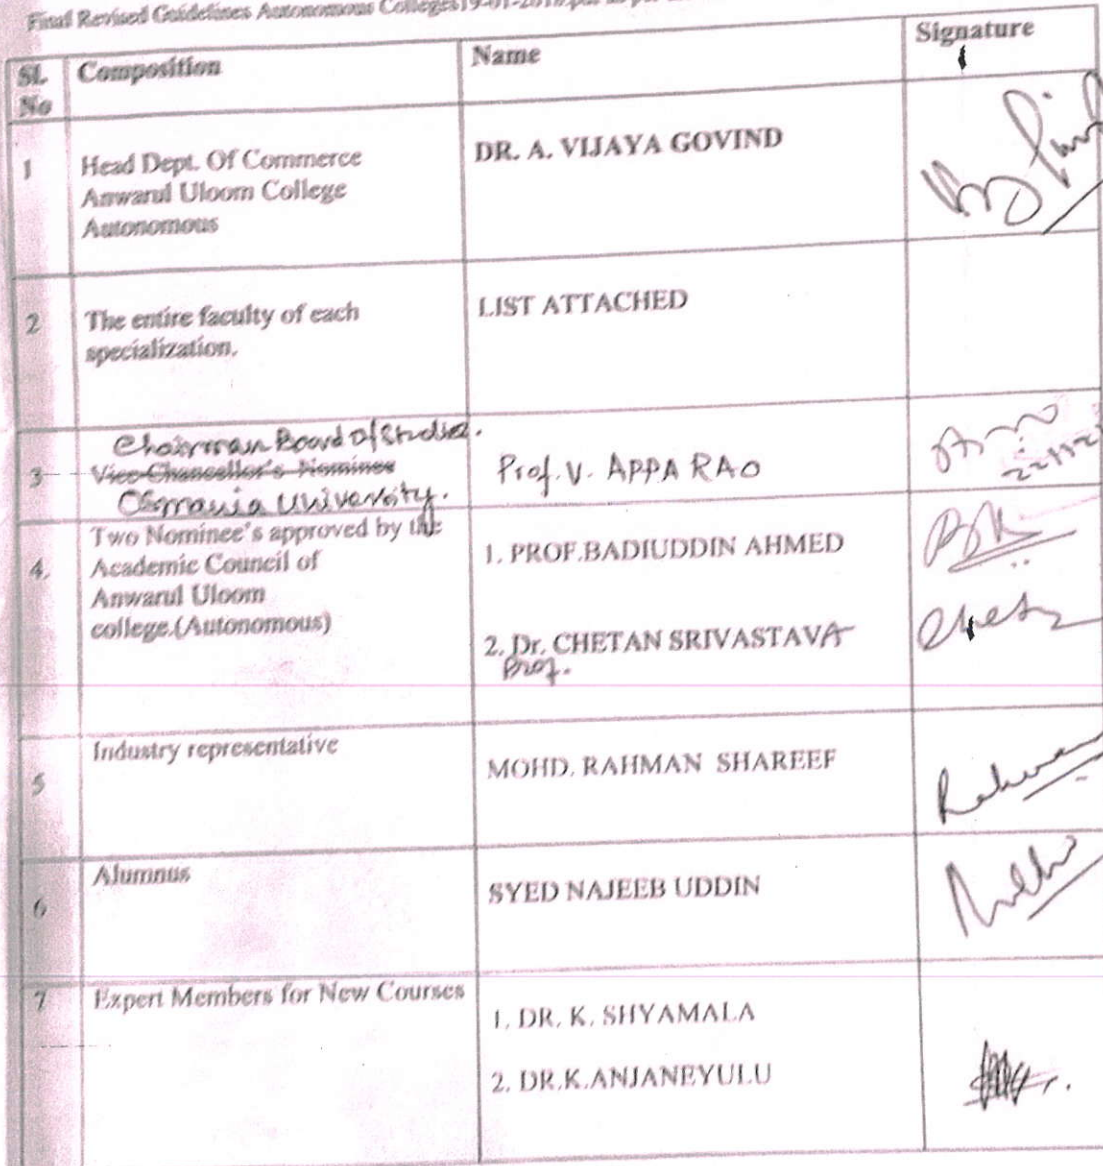 Final Revised Guidelines Autonomous Colleges
Sl. No Composition Name Signature
1 Head Dept. Of Commerce
Anwarul Uloom College
Autonomous
DR. A. VIJAYA GOVIND
2 The entire faculty of each
specialization.
LIST ATTACHED
Chairman Board of Studies.
3 Vice-Chancellor's Nominee
Osmania University.
Prof. V. APPA RAO
4. Two Nominee's approved by the
Academic Council of
Anwarul Uloom
college.(Autonomous)
1. PROF.BADIUDDIN AHMED
2. Dr. CHETAN SRIVASTAVA
Prof.
5 Industry representative
MOHD. RAHMAN SHAREEF
6 Alumnus
SYED NAJEEB UDDIN
7 Expert Members for New Courses
1. DR. K. SHYAMALA
2. DR.K.ANJANEYULU